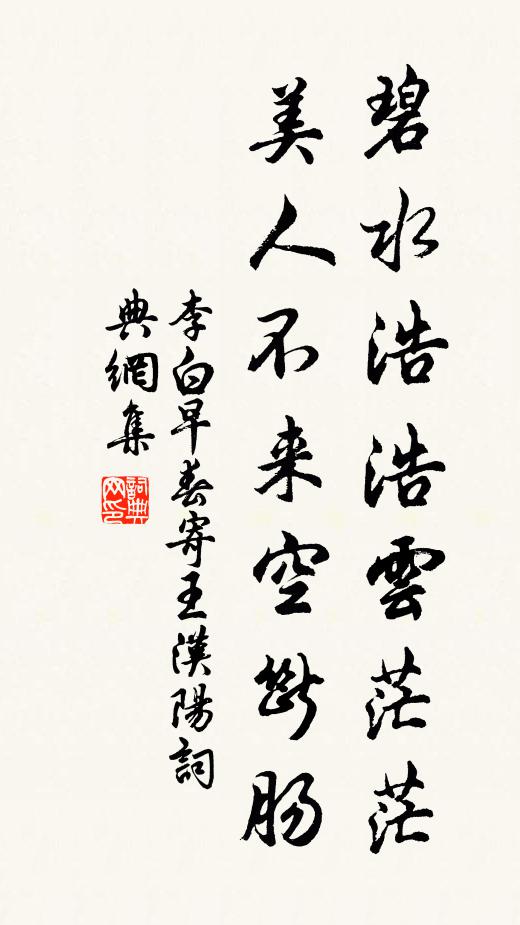 碧水浩浩雲茫茫
美人不来空斷腸
李白早春寄王漢陽詞
典網集
詞典网印